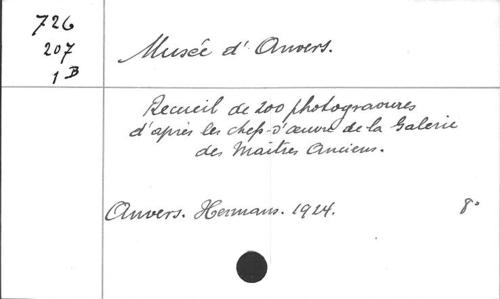 726
207
1 B
Musée d'Anvers.
Recueil de 200 photogravures
d'après les chefs-d'œuvre de la Galerie
des Maîtres Anciens.
Anvers. Hermans. 1924. 8°